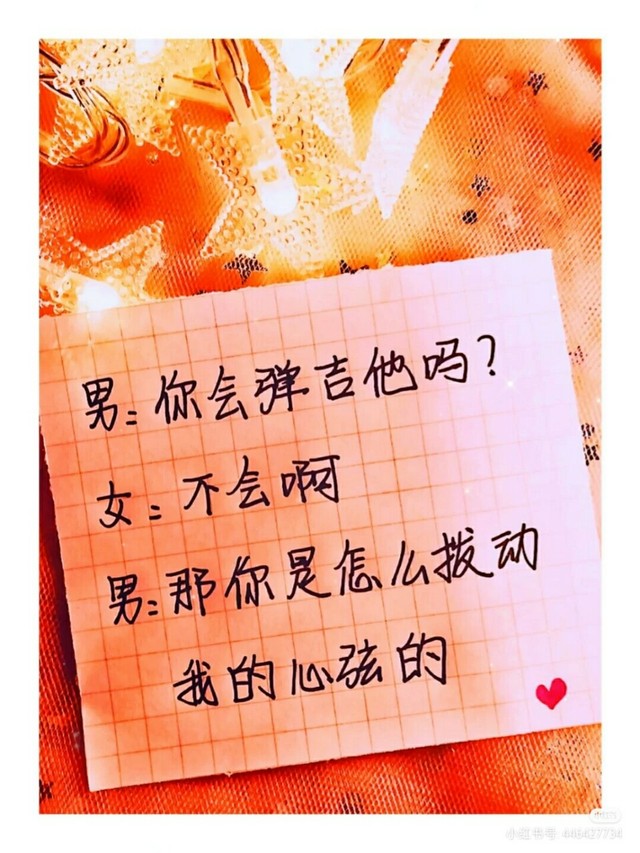 男：你会弹吉他吗？
女：不会啊
男：那你是怎么拨动
我的心弦的
小红书号: 448427734